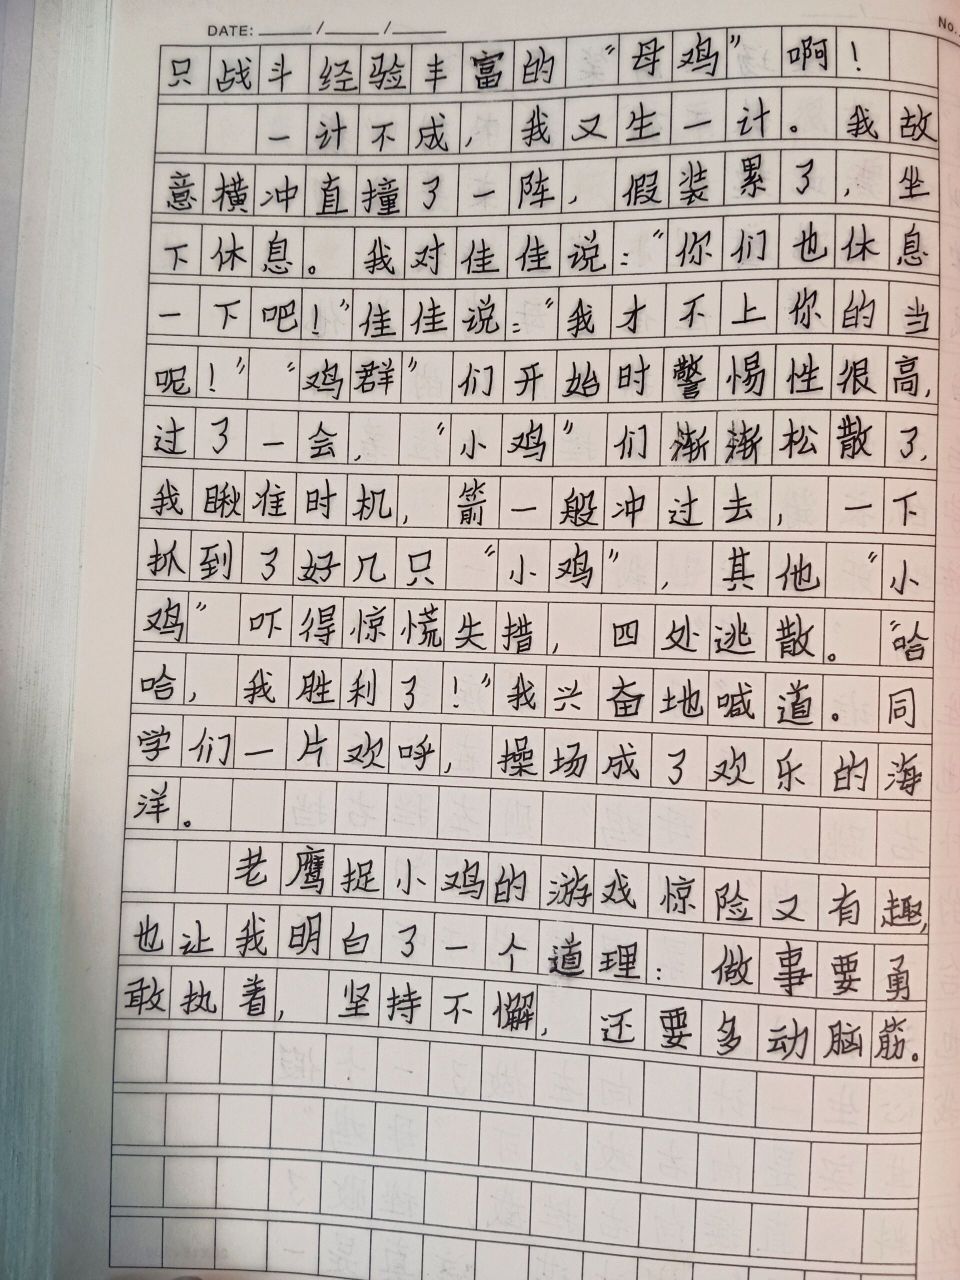 DATE: ____/____/____ No.
只战斗经验丰富的“母鸡”啊！
一计不成，我又生一计。我故
意横冲直撞了一阵，假装累了，坐
下休息。我对佳佳说：“你们也休息
一下吧！”佳佳说：“我才不上你的当
呢！”“鸡群”们开始时警惕性很高，
过了一会，“小鸡”们渐渐松散了，
我瞅准时机，箭一般冲过去，一下
抓到了好几只“小鸡”，其他“小
鸡”吓得惊慌失措，四处逃散。“哈
哈，我胜利了！”我兴奋地喊道。同
学们一片欢呼，操场成了欢乐的海
洋。
老鹰捉小鸡的游戏惊险又有趣，
也让我明白了一个道理：做事要勇
敢执着，坚持不懈，还要多动脑筋。